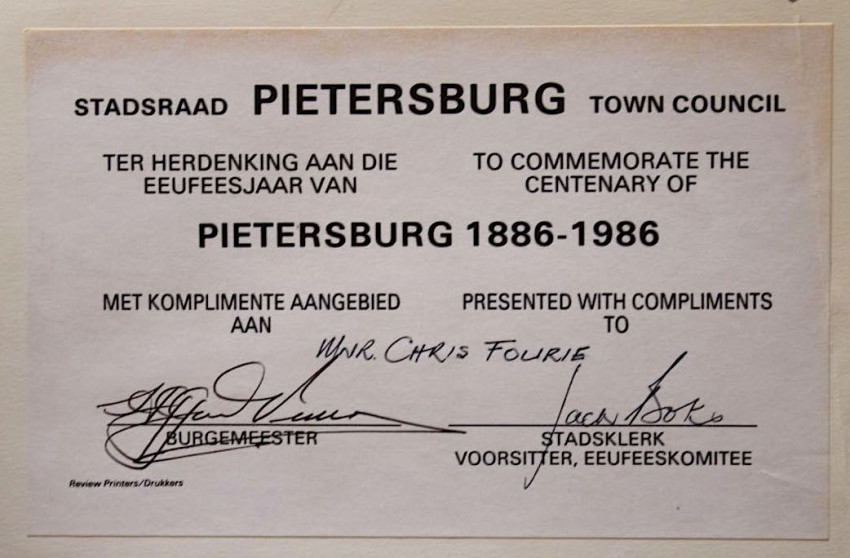 STADSRAAD PIETERSBURG TOWN COUNCIL
TER HERDENKING AAN DIE
EEUFEESJAAR VAN
TO COMMEMORATE THE
CENTENARY OF
PIETERSBURG 1886-1986
MET KOMPLIMENTE AANGEBIED
AAN
PRESENTED WITH COMPLIMENTS
TO
MNR. CHRIS FOURIE
BURGEMEESTER
Jack Botes
STADSKLERK
VOORSITTER, EEUFEESKOMITEE
Review Printers/Drukkers